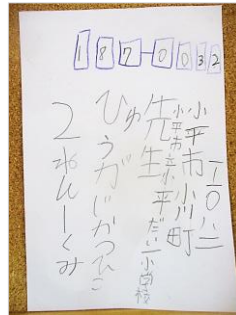 187-0032
小平市小川町
一一〇八二
小平市立小平だい一小学校
先生
ひゅうがじかつひこ
2ねん一くみ